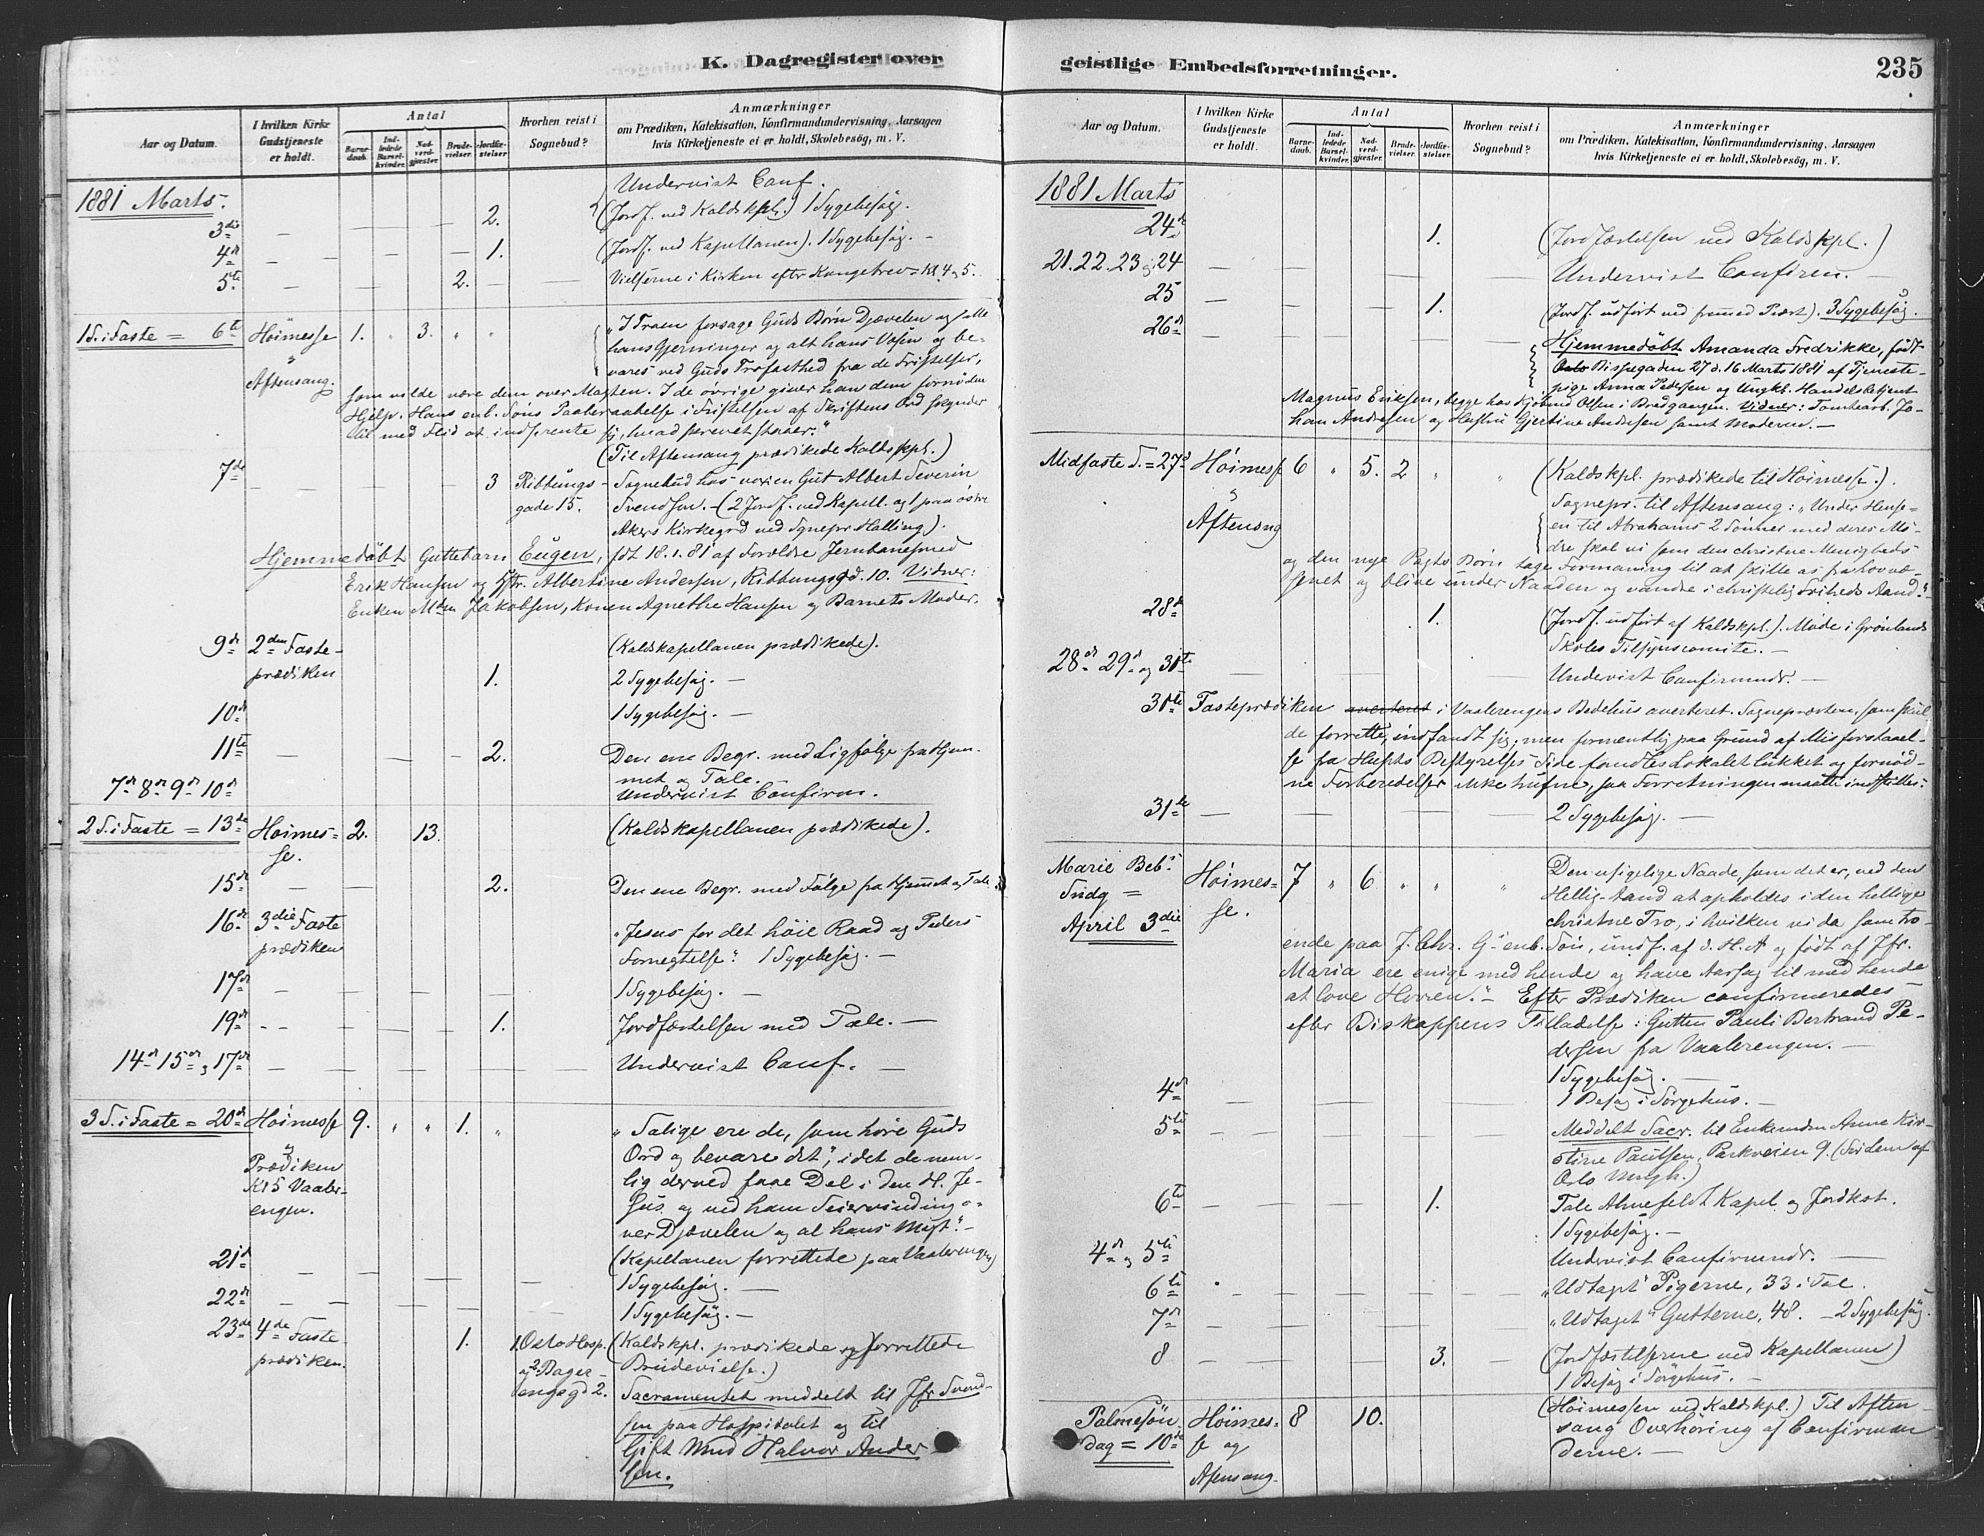 K. Dagregister over
Aar og Datum.
I hvilken Kirke Gudstjeneste er holdt.
Antal
Barnedaab.
Indledede Barselkvinder.
Nadverdgjester.
Brudevielser.
Jordfæstelser.
Hvorhen reist i Sognebud?
Anmærkninger
om Prædiken, Katekisation, Konfirmandundervisning, Aarsagen
hvis Kirketjeneste ei er holdt, Skolebesøg, m. V.
1881 Marts.
Undervist Conf.
3die 2. (Jordf. ved Kaldskpl.) 1 Sygebesøg.
4de 1. (Jordf. ved Kapellanen). 1 Sygebesøg. –
5te 2. Vielserne i Kirken efter Kongebrev = Kl 4 og 5.
1 S. i Faste = 6te Høimesse 1. " 3. " " "I Troen forsage Guds Børn Djævelen og alle
" hans Gjerninger og alt hans Væsen og be-
Aftensang. vares ved Guds Trofasthed fra de Fristelser,
som vilde være dem over Magten. I de øvrige giver han dem fornøden
Hjelp. Hans enb. Søns Paaberaabelse i Fristelsen af Skriftens Ord skynder
til med Flid at indprente sig, hvad skrevet staaer."
(Til Aftensang prædikede Kaldskpl.)
7de 3 Ribbungs- Sognebud hos voxen Gut Albert Severin
gade 15. Svendsen. – (2 Jordf. ved Kapell. og 1 paa østre
Akers Kirkegrd ved Sgnepr Halling).
Hjemmedøbt Guttebarn Eugen, fdt 18.1.81 af Forældre Jernbanesmed
Erik Hansen og Hstr. Albertine Andersen, Ribbungsgd. 10. Vidner:
Enken Jakobsen, Konen Agnethe Hansen og Barnets Moder.
9de 2den Faste- (Kaldskapellanen prædikede).
prædiken 1. 2 Sygebesøg. –
10de 1 Sygebesøg. –
11te 2. Den ene Begr. med Ligfølge fra Hjem-
met og Tale.
7de 8de 9de 10de Undervist Confirm.
2 S. i Faste = 13de Høimes- 2. 13. (Kaldskapellanen prædikede).
se.
15de 2. Den ene Begr. med Følge fra Hjemmet og Tale.
16de 3die Faste "Jesus for det høie Raad og Peders
prædiken Fornegtelse". 1 Sygebesøg. –
17de 1 Sygebesøg. –
19de 1. Jordfæstelsen med Tale. –
14de 15de og 17de Undervist Conf. –
3 S. i Faste = 20de Høimesse 9. " " 1. " "Salige ere de, som høre Guds
" Ord og bevare det", idet de nem-
Prædiken lig derved faae Del i den H. Je-
Kl 5 Vaaler- sus og ved ham Seiervinding o-
engen. ver Djævelen og al hans Magt." –
(Kapellanen forrettede paa Vaalerengen)
21de 1 Sygebesøg. –
22de 1 Sygebesøg. –
23de 4de Faste- 1. 1. Oslo Hosp. (Kaldskpl. prædikede og forrettede
prædiken. og 2. Dager- Brudevielse.)
engsgd 2. Sacramentet meddelt til Jfr Svend-
sen paa Hospitalet og til
Gift Mnd Halvor Ander
sen.
geistlige Embedsforretninger.
235
Aar og Datum.
I hvilken Kirke Gudstjeneste er holdt.
Antal
Barnedaab.
Indledede Barselkvinder.
Nadverdgjester.
Brudevielser.
Jordfæstelser.
Hvorhen reist i Sognebud?
Anmærkninger
om Prædiken, Katekisation, Konfirmandundervisning, Aarsagen
hvis Kirketjeneste ei er holdt, Skolebesøg, m. V.
1881 Marts
24de 1. (Jordfæstelsen ved Kaldskpl.)
21. 22. 23 og 24 Undervist Confirm. –
25 1. (Jordf. udført ved fremmed Præst). 3 Sygebesøg.
26de Hjemmedøbt Amanda Fredrikke, født
Oslo Bispegaden 27 d. 16 Marts 1881 af Tjeneste-
pige Anna Pedersen og Ungk. Handelsbetjent
Magnus Eriksen, begge hos Kjøbmd Olsen i Brdgangen. Vidner: Tomtearb. Jo-
han Andresen og Hustru Gjertine Andersen samt Moderen. –
Midfaste S. = 27de Høimesse 6 " 5. 2 " " (Kaldskpl. prædikede til Høimesse.)
" Sognepr. til Aftensang: "Under Hense-
Aftensng en til Abrahams 2 Sønner med deres Mø-
dre skal vi som den christne Menigheds
og den nye Pagts Børn tage Formaning til at skille os fra Hovvæ-
senet og blive under Naaden og vandre i christelig Friheds Aand." –
28de 1. (Jordf. udført af Kaldskpl.). Møde i Grønlands
Skoles Tilsynscomite. –
28de 29de og 31te Undervist Confirmndr. –
31te Fasteprædiken averteret i Vaalerengens Bedehus averteret. Sognepræsten, som skul
de forrette, indfandt sig, men formentlig paa Grund af Misforstaael-
se fra Husets Bestyrelses Side fandtes Lokalet lukket og fornød-
ne Forberedelser ikke trufne, saa Forretningen maatte indstilles.
31te 2 Sygebesøg. –
Marie Beb. Høimes- 7 " 6 " " " Den usigelige Naade, som det er, ved den
Sndg = se. Hellig-Aand at opholdes i den hellige
April 3die christne Tro, i hvilken vi da som tro-
ende paa J. Chr. G's enb. Søn, undf. af d. H. A og født af Jfr.
Maria ere enige med hende og have Aarsag til med hende
at love Herren." – Efter Prædiken confirmeredes
efter Biskoppens Tilladelse: Gutten Pauli Bertrand Pe-
dersen fra Vaalerengen. –
4de 1 Sygebesøg. –
1 Besøg i Sørgehus. –
5te Meddelt Sacr. til Enkemden Anne Kir-
stine Paulsen, Parkveien 9. (Fordem af
Oslo Mnigh.)
6te 1. Tale Ahnefeldt Kapel og Jordkst.
1 Sygebesøg. –
4de og 5te Undervist Confirmndr. –
6te "Udtaget" Pigerne, 33 i Tal.
7de "Udtaget" Gutterne, 48. – 2 Sygebesøg.
8 3. (Jordfæstelserne ved Kapellanen)
1 Besøg i Sørgehus. –
Palmesøn Høimes- 8 10. (Høimessen ved Kaldskpl.) Til Aften-
dag = 10de se og sang Overhøring af Confirman
Aftensang derne. –